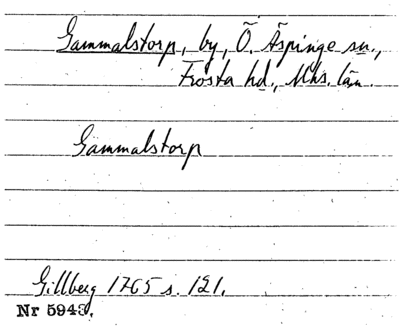 Gammalstorp, by, Ö. Äspinge sn.,
Frosta hd., Mhs. län.
Gammalstorp
Gillberg 1765 s. 121.
Nr 5943.